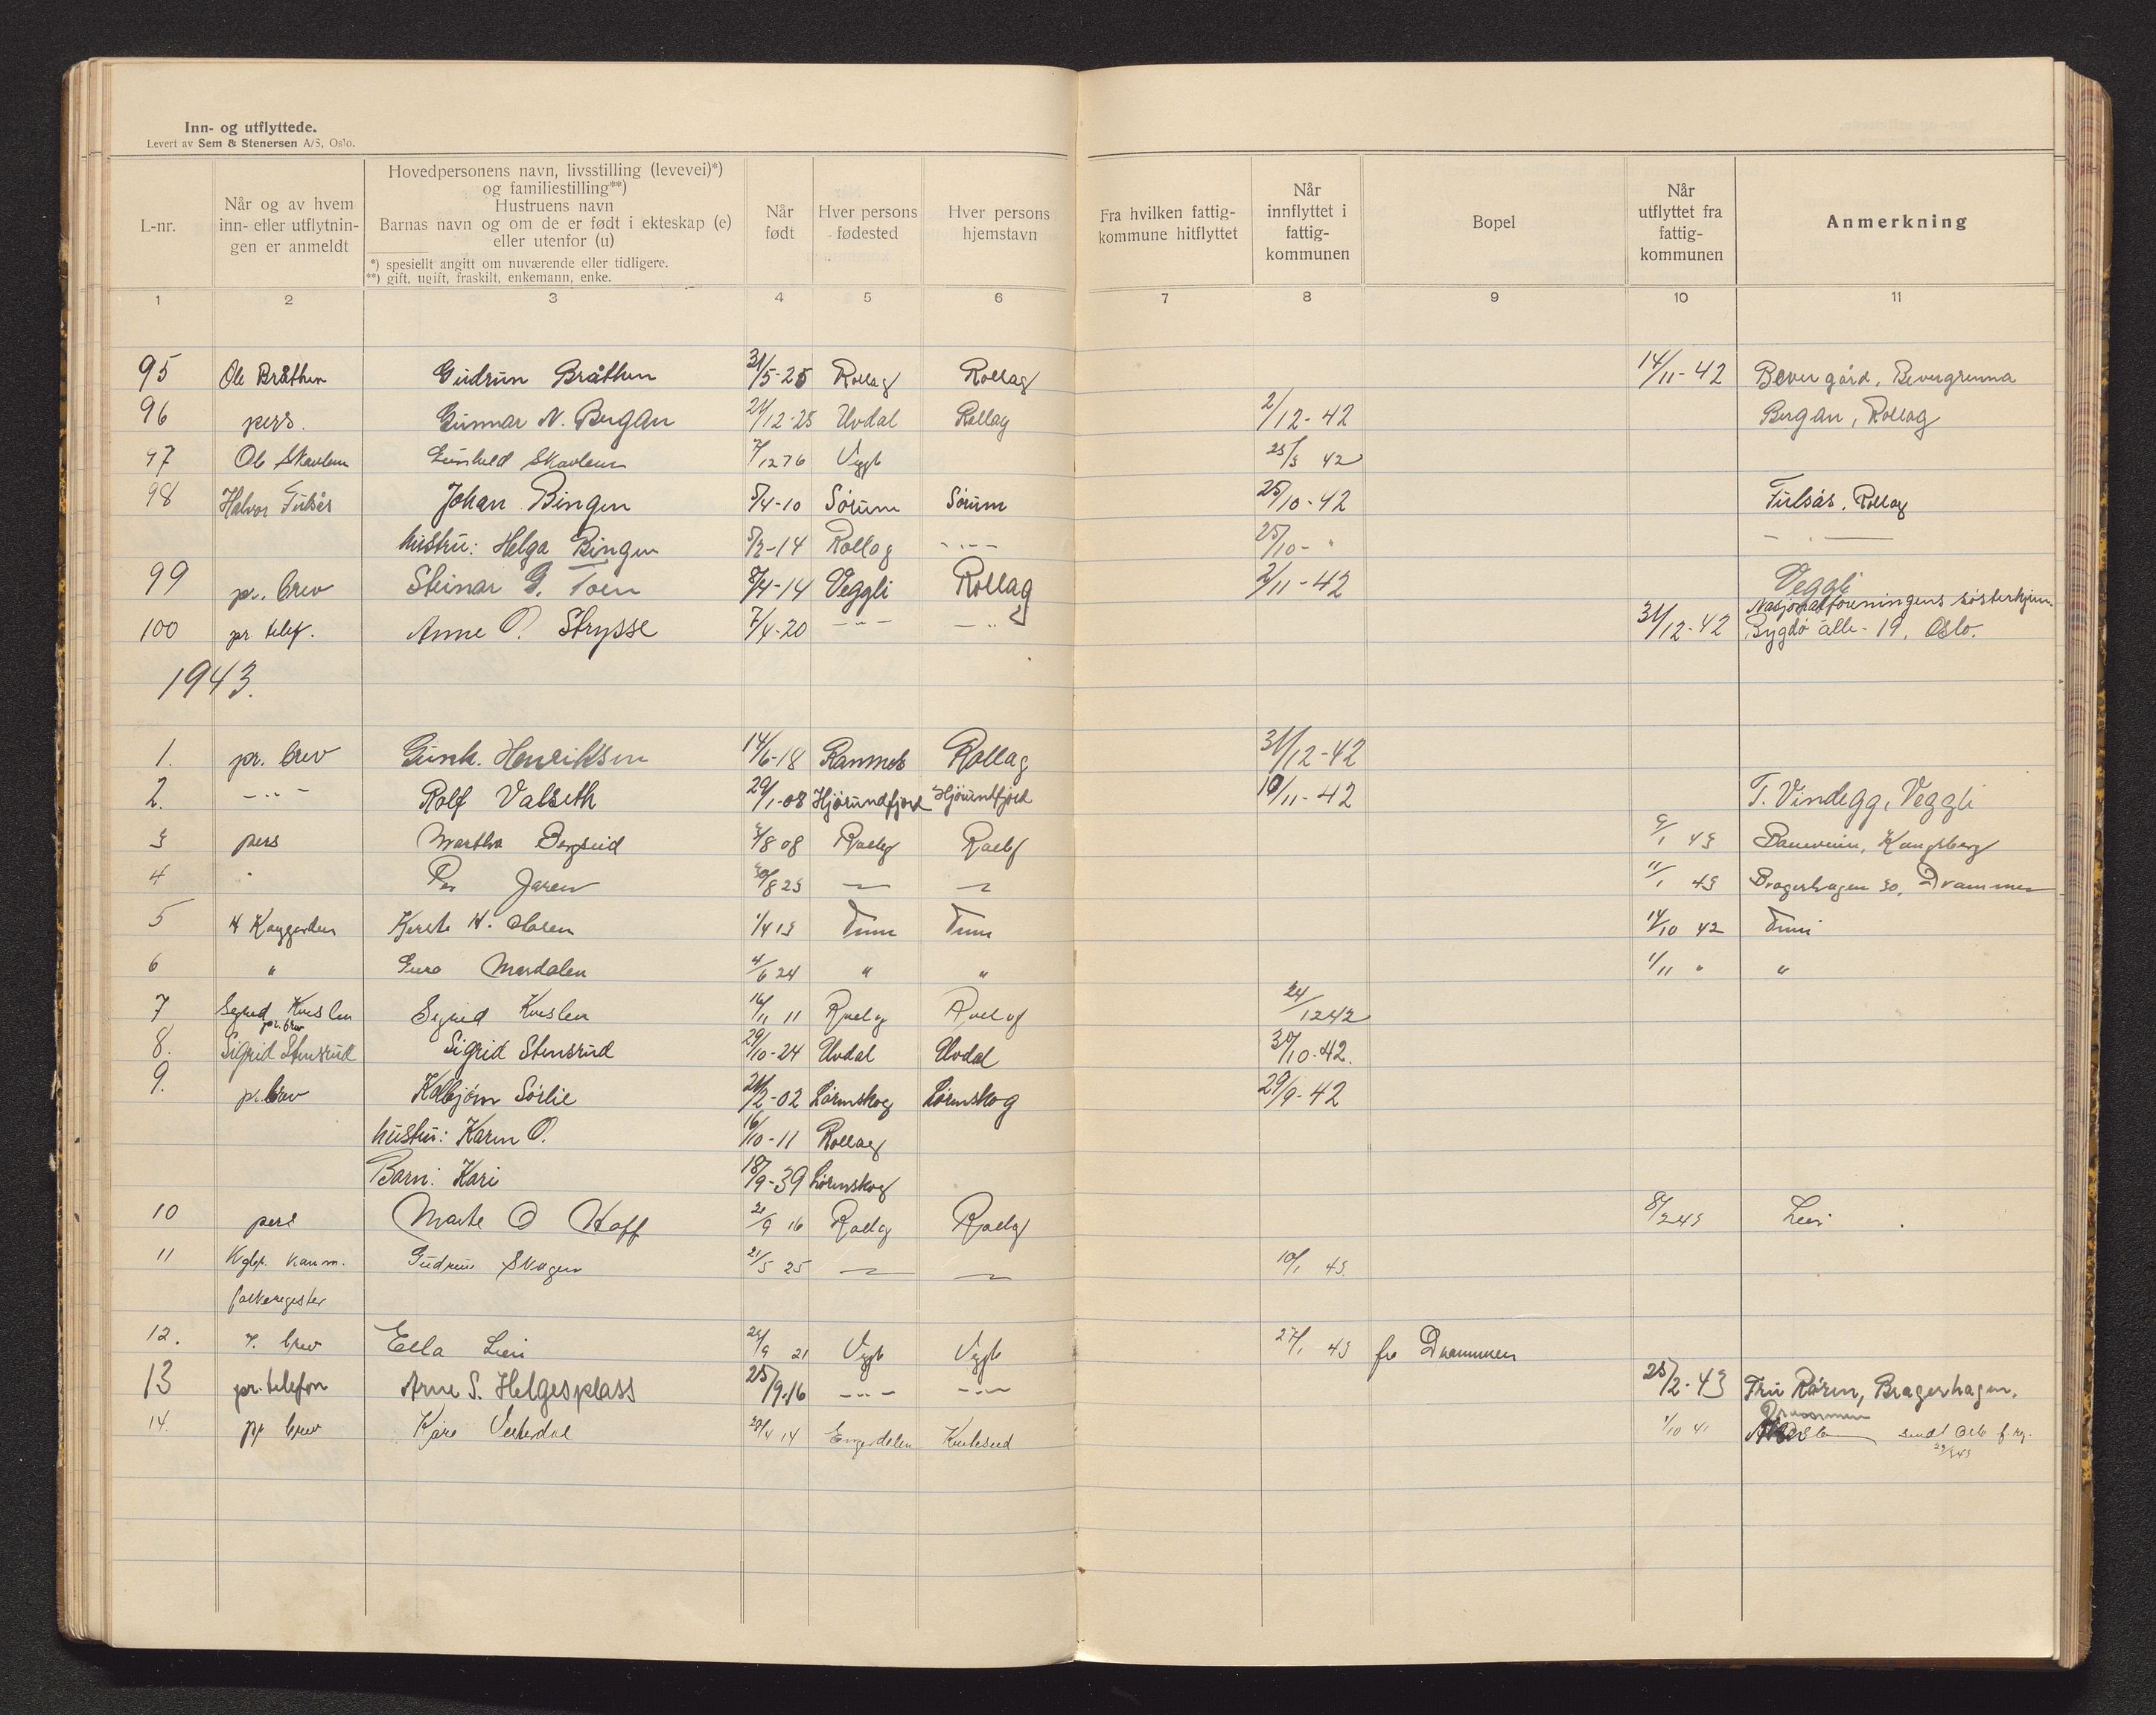 Inn- og utflyttede.
Levert av Sem & Stenersen A/S, Oslo.
L-nr.
Når og av hvem
inn- eller utflytnin-
gen er anmeldt
Hovedpersonens navn, livsstilling (levevei)*)
og familiestilling**)
Hustruens navn
Barnas navn og om de er født i ekteskap (e)
eller utenfor (u)
*) spesiellt angitt om nuværende eller tidligere.
**) gift, ugift, fraskilt, enkemann, enke.
Når
født
Hver persons
fødested
Hver persons
hjemstavn
Fra hvilken fattig-
kommune hitflyttet
Når
innflyttet i
fattig-
kommunen
Bopel
Når
utflyttet fra
fattig-
kommunen
Anmerkning
1 2 3 4 5 6 7 8 9 10 11
95 Ole Bråthen Gudrun Bråthen 31/5-25 Rollag Rollag 14/11-42 Bever gård, Bevergrenna
96 pers. Gunnar N. Bergan 21/12-25 Uvdal Rollag 2/12-42 Bergan, Rollag
97 Ole Skavlem Gunhild Skavlem 7/12 76 Vegli 25/3 42
98 Halvor Fulsås Johan Bingen 5/4-10 Sørum Sørum 25/10-42 Fulsås, Rollag
hustru: Helga Bingen 5/2-14 Rollag -"- 25/10- " - " -
99 pr. brev Steinar G. Toen 8/4-14 Veggli Rollag 2/11-42 Veggli
100 pr. telef. Anne O. Strysse 7/4-20 -"- -"- 31/12-42 Nasjonalforeningens søsterhjem.
Bygdø alle- 19. Oslo.
1943.
1. pr. brev Gunh. Henriksen 14/6-18 Ramnes Rollag 31/12-42
2. -"- Rolf Valseth 29/1-08 Hjørundfjord Hjørundfjord 10/11-42 T. Vindegg, Veggli
3 pers Martha Bergerud 3/8 08 Rollag Rollag 9/1 43 Kongsberg
4 " Per Jaren 30/8 23 — — 11/1 43 Bragerhagen 30, Drammen
5 H Kaggestden Kjersti H. 1/4 13 Tinn Tinn 14/10 42 Tinn
6 " Guro Mardalen 4/6 24 " " 1/11 " "
7 Sigrid Kvislen Sigrid Kvislen 16/11 11 Rollag Rollag 24/12 42
pr. brev
8. Sigrid Stensrud Sigrid Stensrud 29/10-24 Uvdal Uvdal 30/10-42.
9. pr. brev Kolbjørn Sørlie 21/2-02 Lørenskog Lørenskog 29/9-42
hustru: Karen O. 16/10-11 Rollag
Barn: Kari 18/9-39 Lørenskog
10 pers Marte O Hoff 21/9 16 Rollag Rollag 8/2 43 Lier.
11 Kgbg. Gudrun Skogen 21/5 25 — — 10/1 43
folkeregister
12. p. brev Ella Lien 23/9 21 Vegli Vegli 27/1 43 fra Drammen
13 pr. telefon Arne S. Helgesplass 25/9-16 -"- -"- 25/2-43 Fru Rören, Bragerhagen,
Drammen
14. pr brev Kåre Vesterdal 20/4 14 Engerdalen 1/10 41 sendt Oslo f. reg.